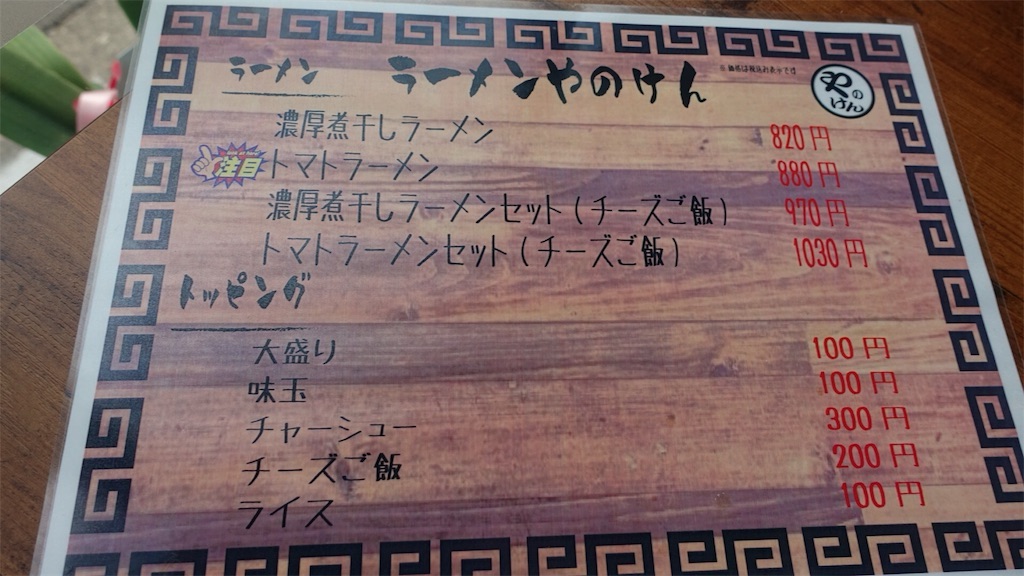 ラーメン
ラーメンやのけん
※価格は税込み表示です
やのけん
濃厚煮干しラーメン 820円
注目 トマトラーメン 880円
濃厚煮干しラーメンセット(チーズご飯) 970円
トマトラーメンセット(チーズご飯) 1030円
トッピング
大盛り 100円
味玉 100円
チャーシュー 300円
チーズご飯 200円
ライス 100円